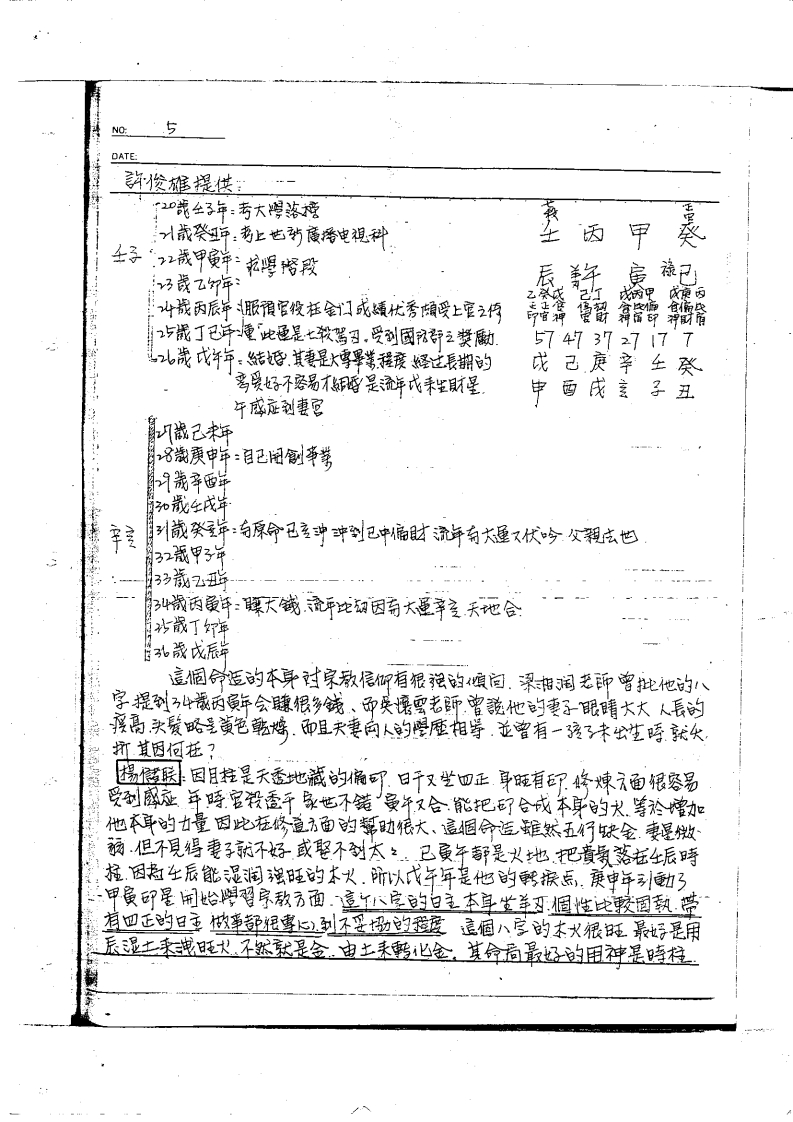 NO: 5
DATE:
許俊雄提供:
20歲壬子年=考大學落榜
21歲癸丑年=考上世新廣播电視科
22歲甲寅年=求學階段
23歲乙卯年=
24歲丙辰年=服預官役在金门成績优秀頗受上官之待
25歲丁巳年="此運是七殺駕刃.受到國防部之獎勵.
26歲戊午年=結婚.其妻是大專畢業程度 經过長期的
恋爱好不容易才結婚 是流年戊來生財星.
午感应到妻宮
壬子
殺 正官
壬 丙 甲 癸
辰 羊刃午 寅 祿巳
乙癸戊 己丁 戊丙甲 戊庚丙
57 47 37 27 17 7
戊 己 庚 辛 壬 癸
申 酉 戌 亥 子 丑
27歲己未年
28歲庚申年=自己開創事業
29歲辛酉年
30歲壬戌年
31歲癸亥年=有原命巳亥沖 沖到巳中偏財 流年有大運又伏吟 父親去世
32歲甲子年
33歲乙丑年
34歲丙寅年=賺大錢.流年比劫因有大運辛亥.天地合.
35歲丁卯年
36歲戊辰年
辛亥
這個命造的本身对宗教信仰有很强的傾向.梁湘润老師曾批他的八
字.提到34歲丙寅年会賺很多錢、而吳懷雲老師.曾談他的妻子眼睛大大 人長的
瘦高.头髮略呈黃色乾燥.而且夫妻向人的學歷相等.並曾有一孩子未出生時.就夭
折.其因何在?
楊儒联:因月柱是天透地藏的偏印.日干又坐四正.身旺有印.修煉方面很容易
受到感应.年時官殺透干.家世不錯.寅午又合.能把印合成本身的火.等於增加
他本身的力量.因此在修道方面的幫助很大、這個命造雖然五行缺金.妻星微
弱.但不見得妻子就不好.或娶不到太太.巳寅午都是火地.把貴氣落在壬辰時
柱.因為壬辰能湿润强旺的木火.所以戊午年是他的轉捩点.庚申年引動了
甲寅印星.開始學習宗教方面.這个八字的日主.本身坐羊刃.個性比較固執.帶
有四正的日主.做事都很專心.到不妥協的程度.這個八字的木火很旺.最好是用
辰湿土來洩旺火.不然就是金.由土來轉化金。其命局最好的用神是時柱.